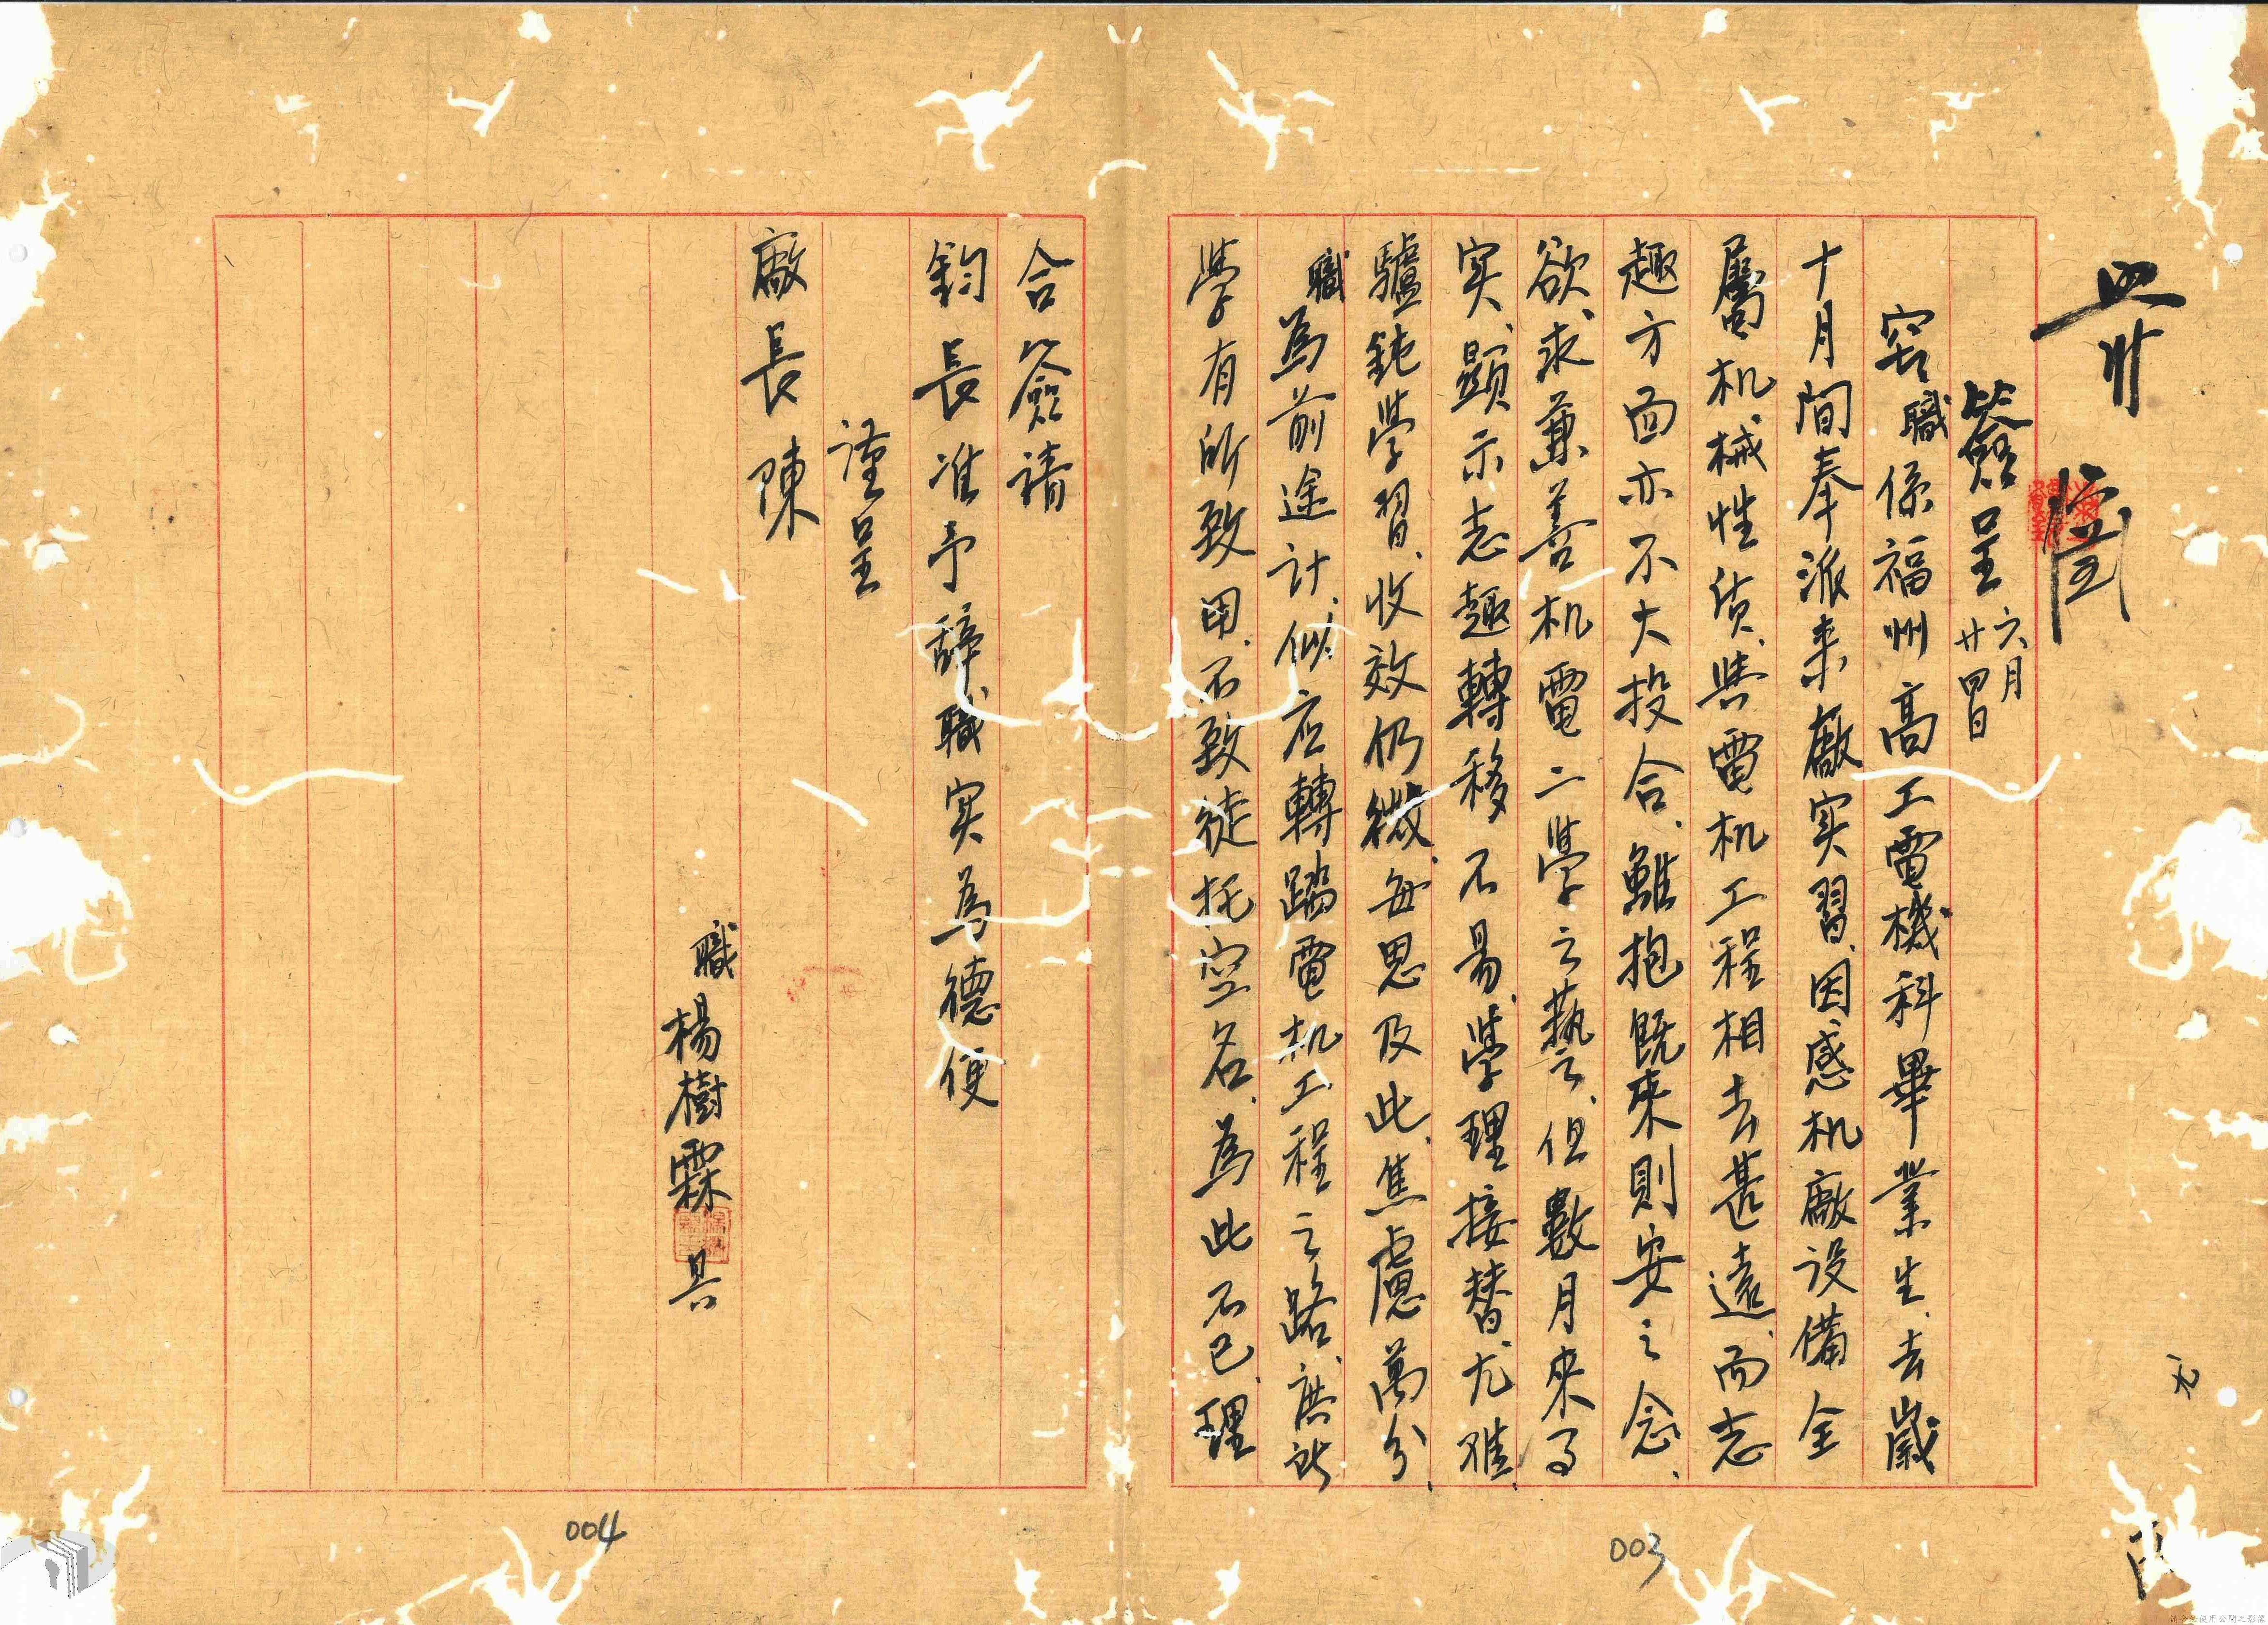 簽呈 六月廿四日
窃職係福州高工電機科畢業生、去歲
十月間奉派来廠实習、因感机廠設備全
屬机械性貭、與電机工程相去甚遠、而志
趣方面亦不大投合、雖抱既來則安之念、
欲求兼善机電二學之藝、但數月來事
实顕示志趣轉移不易、學理接替尤難、
驢鈍學習、收效仍微、每思及此、焦慮萬分、
職為前途計、似应轉踏電机工程之路、庶訧
學有所致用、不致徒托空名、為此不已、理
合簽請
鈞長准予辞職实為德便
謹呈
廠長陳
職楊樹霖 具
003
004